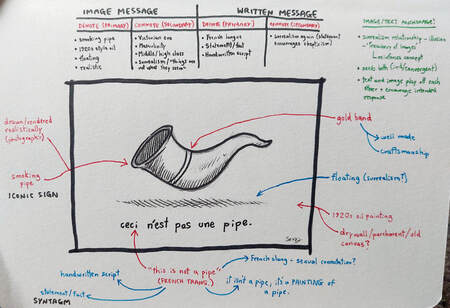 IMAGE MESSAGE
WRITTEN MESSAGE
DENOTE (PRIMARY)
CONNOTE (SECONDARY)
DENOTE (PRIMARY)
CONNOTE (SECONDARY)
• smoking pipe
• 1920s style oil
• floating
• realistic
• Victorian era
• Masculinity
• Middle/high class
• Surrealism/"things are not what they seem"
• French language
• Statement/fact
• Handwritten script
• Surrealism again (statement encourages skepticism)
IMAGE/TEXT
• surrealism relationship - illusion
- "treachery of images"
• needs both
• text and image play off each
other + encourage intended
response
drawn/rendered
realistically
(photographic)
smoking
pipe
ICONIC SIGN
gold band
well made
craftsmanship
floating (surrealism?)
1920s oil painting
drywall/parchment/old
canvas?
ceci n'est pas une pipe.
"this is not a pipe"
(FRENCH TRANS.)
French slang - sexual connotation?
it isn't a pipe, it's a PAINTING of
a pipe.
handwritten script
statement/fact
SYNTAGM